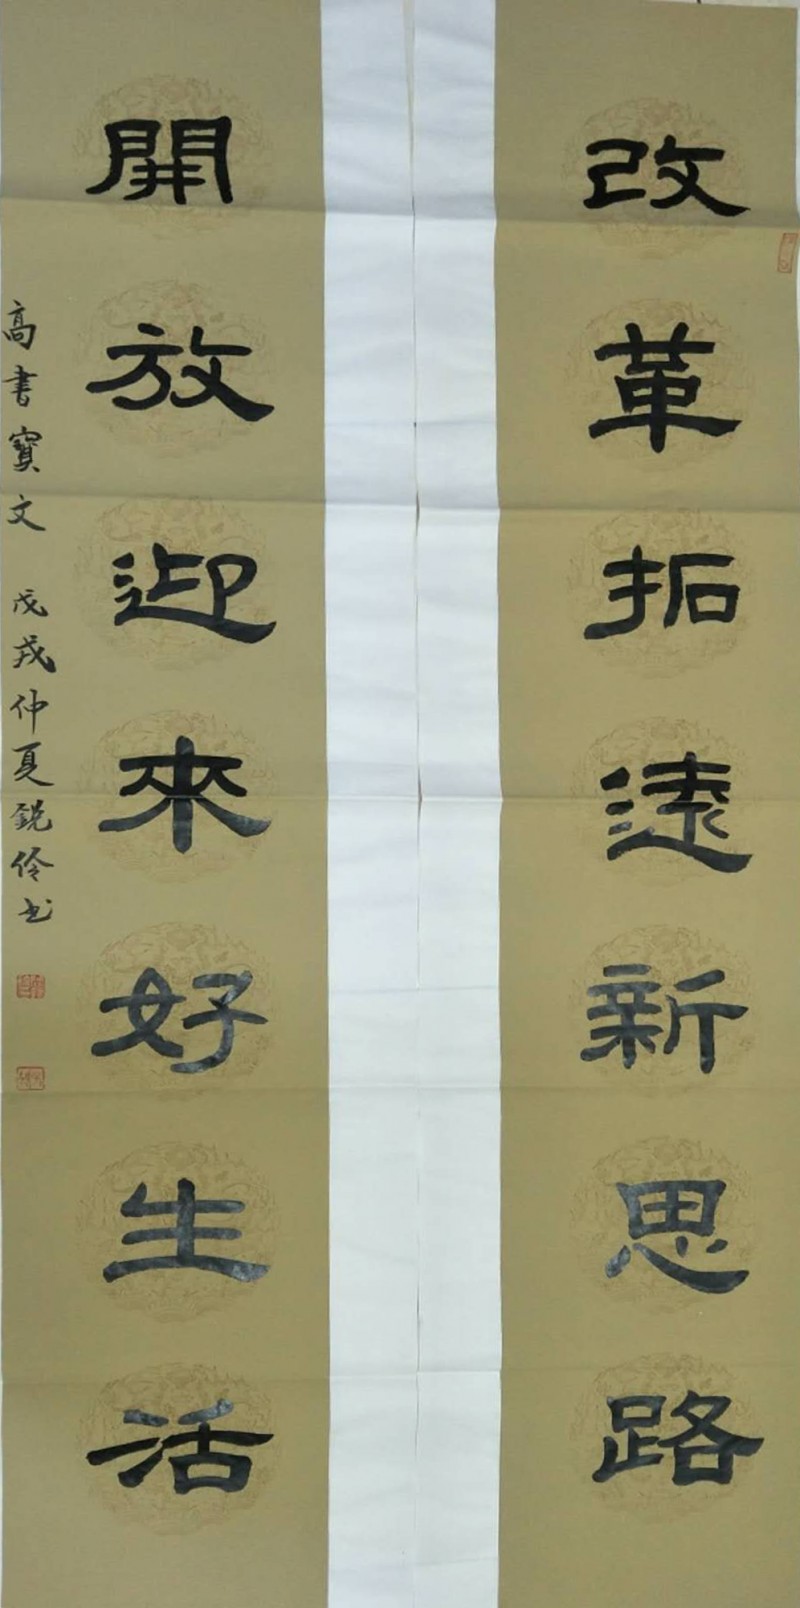 改革拓遠新思路
開放迎來好生活
高書寶文 戊戌仲夏銳伶书